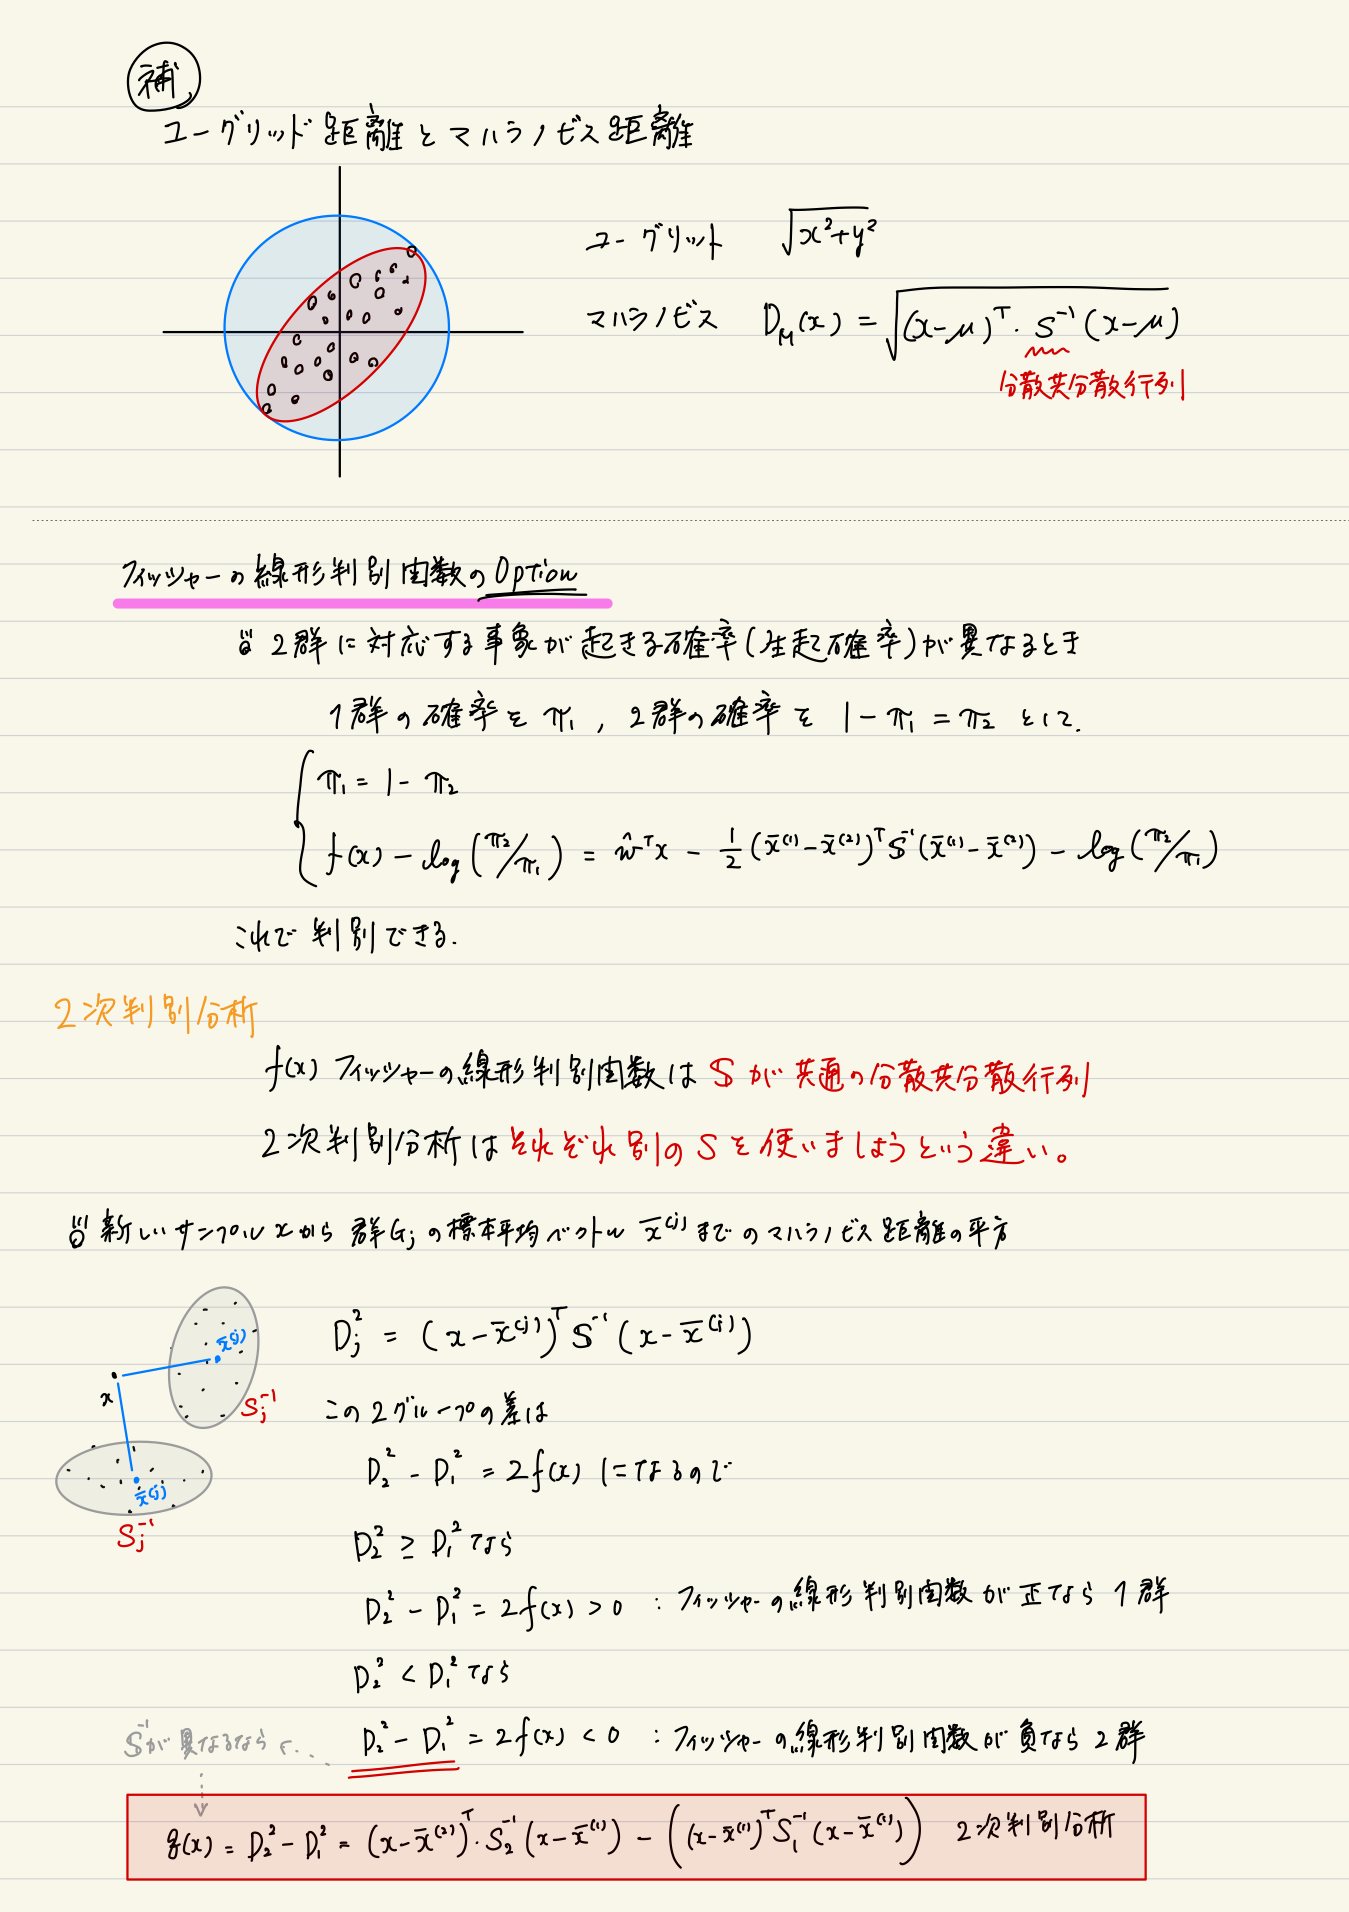 補
ユーグリッド距離とマハラノビス距離
ユーグリット √x²+y²
マハラノビス D_M(x) = √(x-μ)ᵀ・S⁻¹(x-μ)
分散共分散行列
フィッシャーの線形判別関数のOption
2群に対応する事象が起きる確率(生起確率)が異なるとき
1群の確率をπ₁, 2群の確率を1-π₁=π₂として.
π₁ = 1-π₂
f(x) - log(π₂/π₁) = ŵᵀx - 1/2 (x̄⁽¹⁾-x̄⁽²⁾)ᵀS⁻¹(x̄⁽¹⁾-x̄⁽²⁾) - log(π₂/π₁)
これで判別できる.
2次判別分析
f(x) フィッシャーの線形判別関数は Sが共通の分散共分散行列
2次判別分析はそれぞれ別のSを使いましょうという違い。
新しいサンプルxから群Gⱼの標本平均ベクトルx̄⁽ʲ⁾までのマハラノビス距離の平方
x̄⁽ʲ⁾
x
Sⱼ⁻¹
x̄⁽ʲ⁾
Sⱼ⁻¹
Dⱼ² = (x-x̄⁽ʲ⁾)ᵀS⁻¹(x-x̄⁽ʲ⁾)
この2グループの差は
D₂² - D₁² = 2f(x) になるので
D₂² ≥ D₁² なら
D₂² - D₁² = 2f(x) > 0 : フィッシャーの線形判別関数が正なら1群
D₂² < D₁² なら
D₂² - D₁² = 2f(x) < 0 : フィッシャーの線形判別関数が負なら2群
S⁻¹が異なるなら
g(x) = D₂² - D₁² = (x-x̄⁽²⁾)ᵀ・S₂⁻¹(x-x̄⁽¹⁾) - ((x-x̄⁽¹⁾)ᵀS₁⁻¹(x-x̄⁽¹⁾)) 2次判別分析